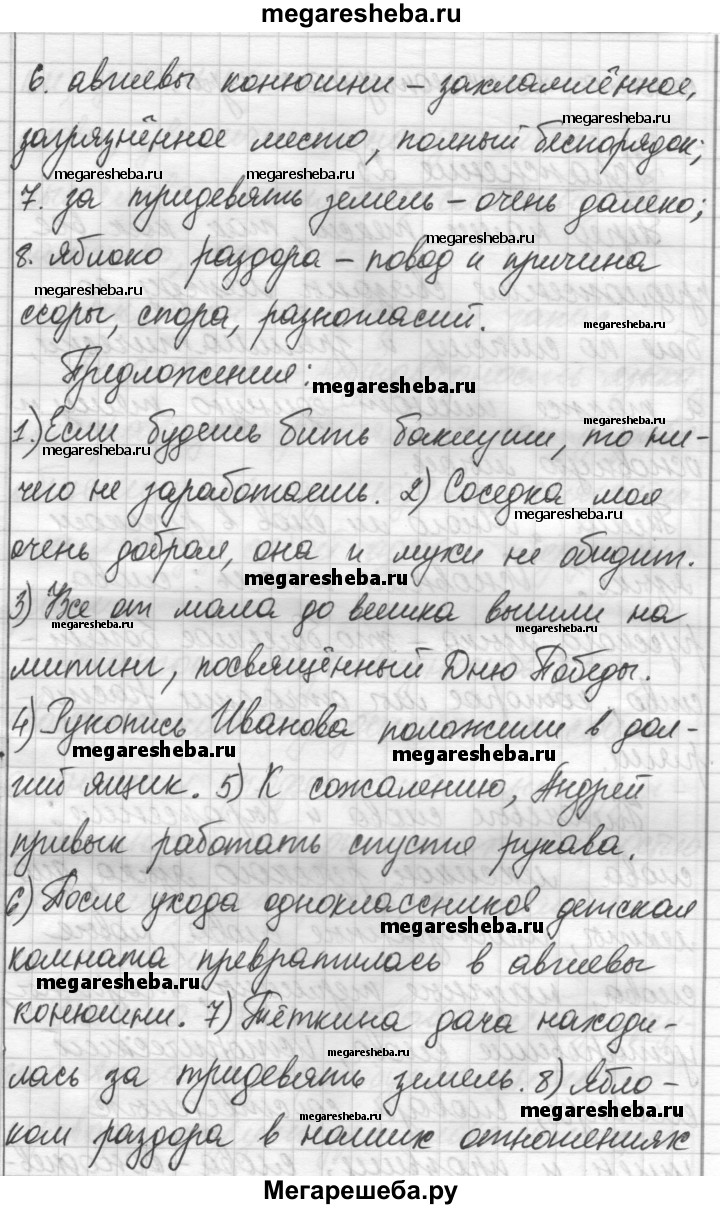 megaresheba.ru
6. авгиевы конюшни – захламлённое,
megaresheba.ru
загрязнённое место, полный беспорядок;
megaresheba.ru megaresheba.ru
7. за тридевять земель – очень далеко;
megaresheba.ru
8. яблоко раздора – повод и причина
megaresheba.ru
ссоры, спора, разногласий.
megaresheba.ru
Предложения:
megaresheba.ru
1.) Если будешь бить баклуши, то ни-
megaresheba.ru megaresheba.ru
чего не заработаешь. 2) Соседка моя
megaresheba.ru
очень добрая, она и мухи не обидит.
megaresheba.ru
3) Все от мала до велика вышли на
megaresheba.ru megaresheba.ru
митинг, посвящённый Дню Победы.
4) Рукопись Иванова положили в дол-
megaresheba.ru megaresheba.ru
гий ящик. 5) К сожалению, Андрей
привык работать спустя рукава.
6) После ухода одноклассников детская
megaresheba.ru
комната превратилась в авгиевы
megaresheba.ru
конюшни. 7) Тёткина дача находи-
megaresheba.ru
лась за тридевять земель. 8) Ябло-
megaresheba.ru megaresheba.ru
ком раздора в наших отношениях
Мегарешеба.ру